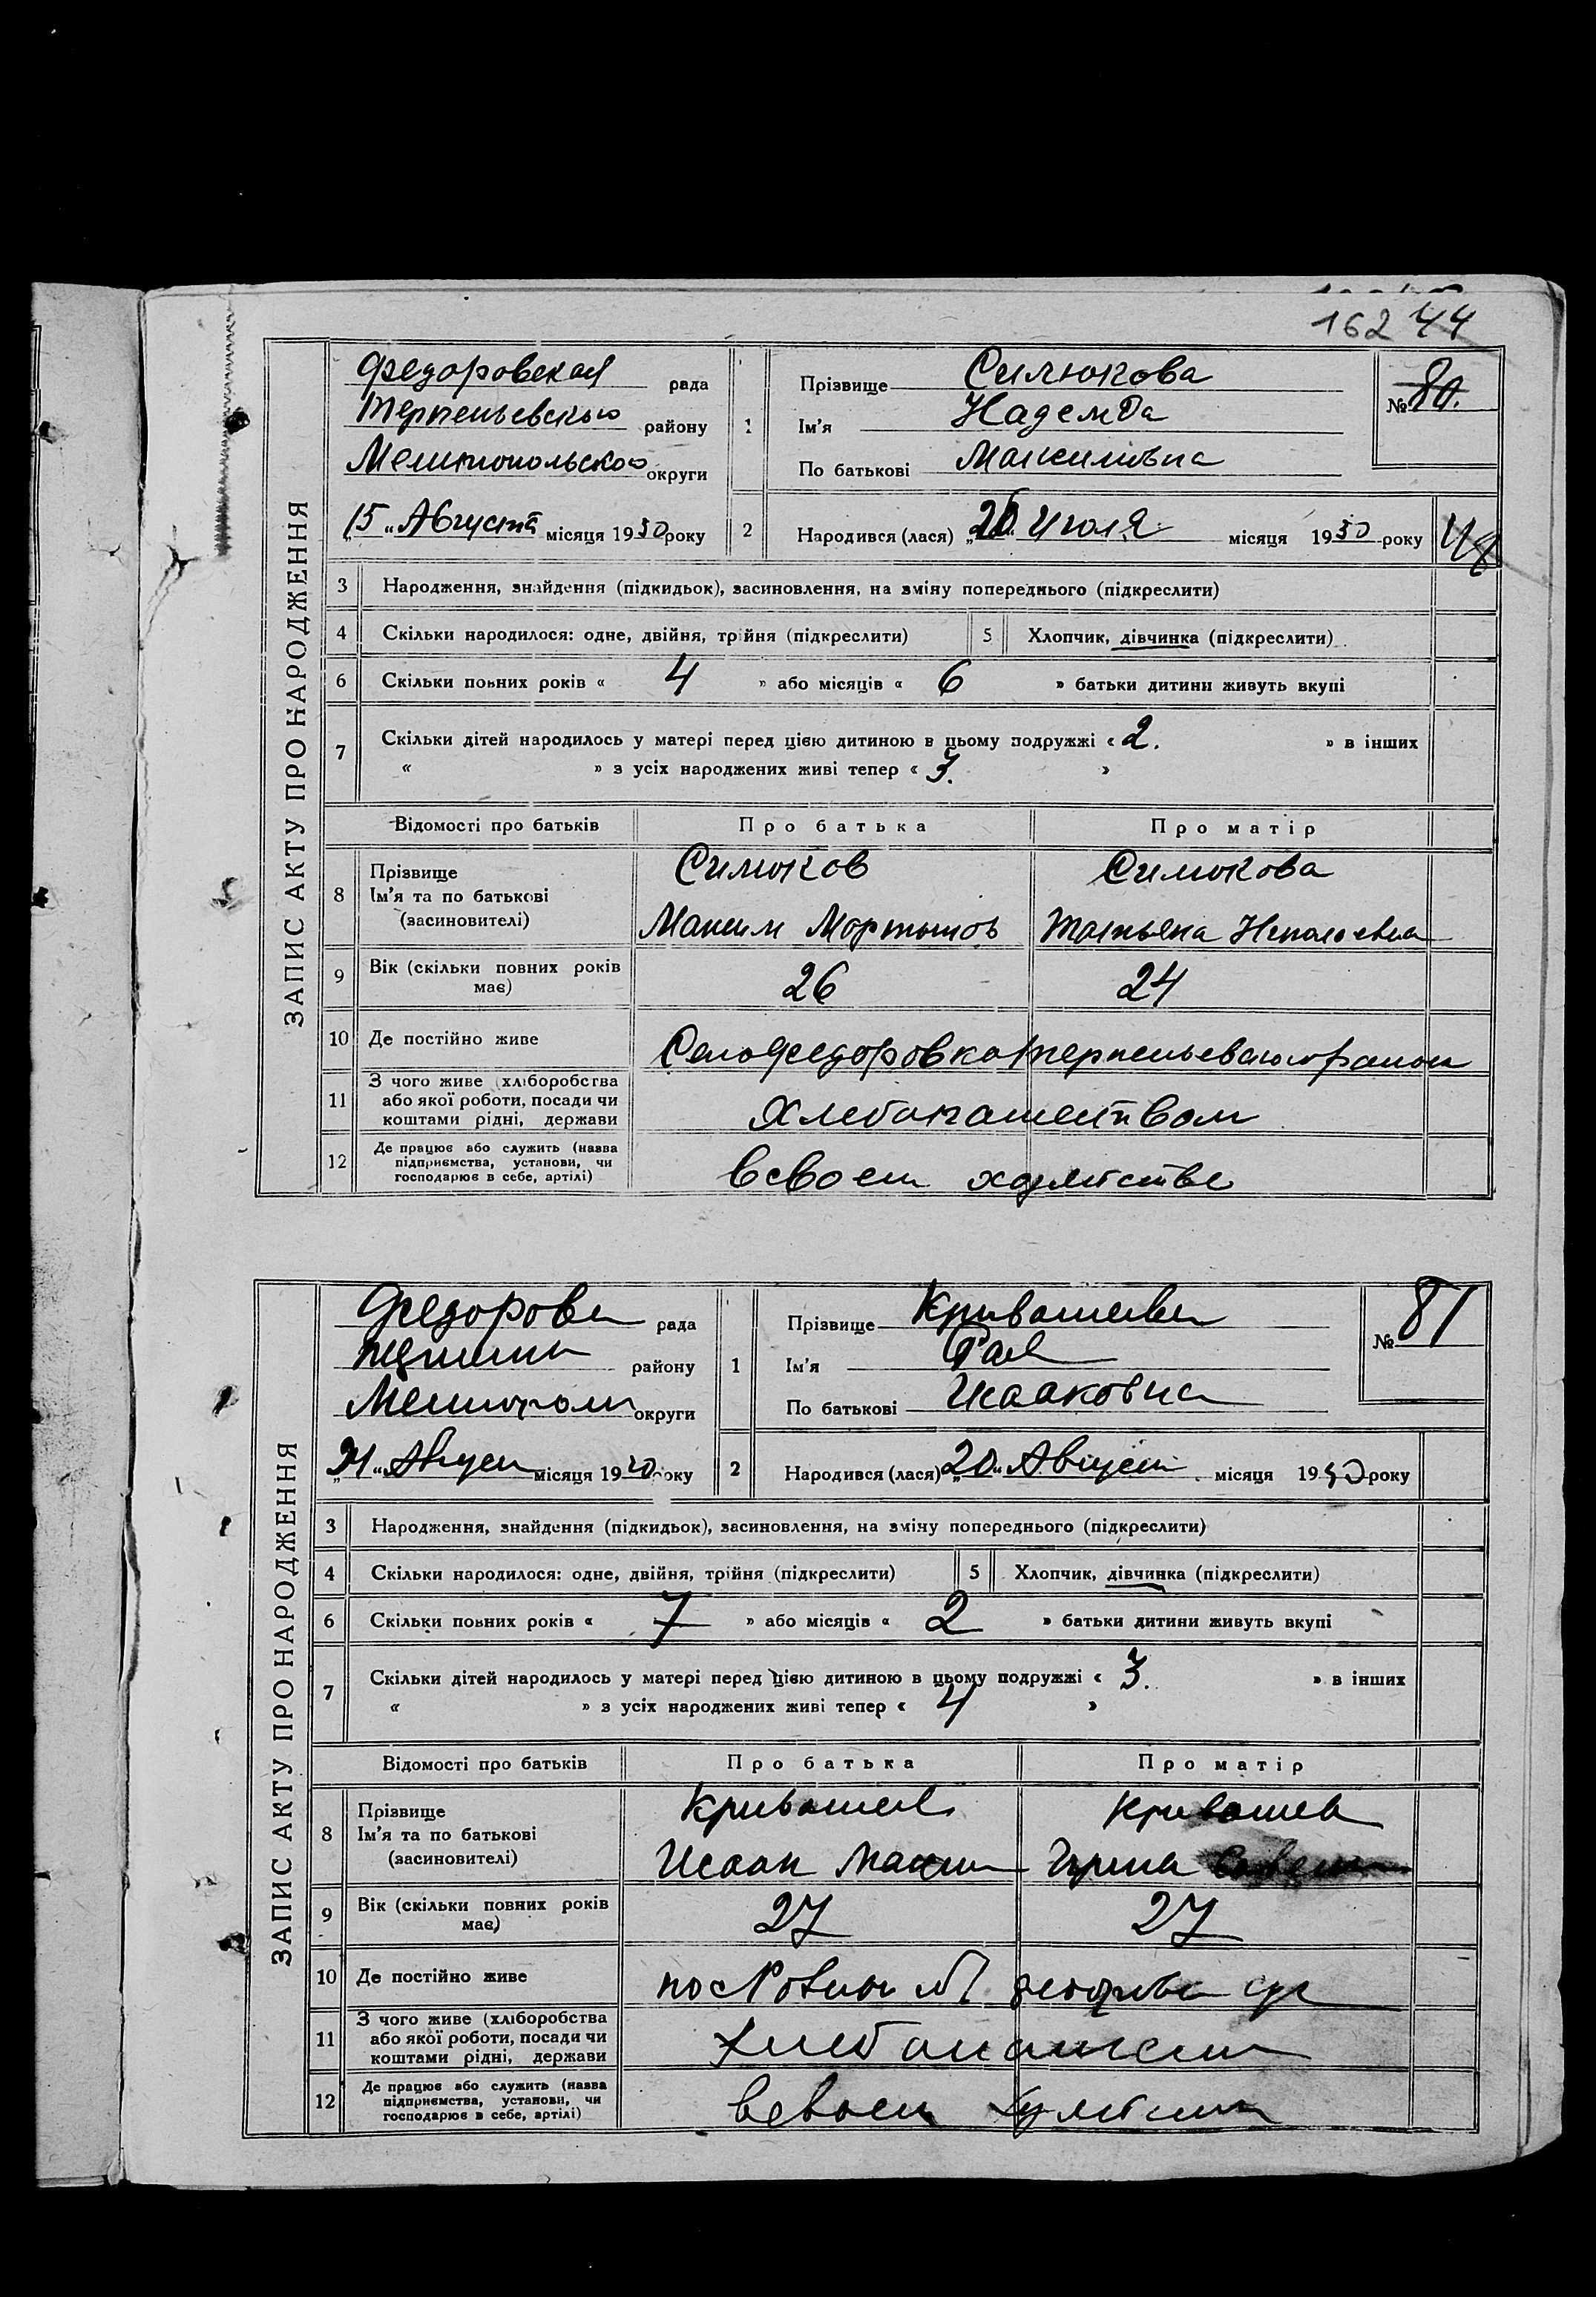 162 44
ЗАПИС АКТУ ПРО НАРОДЖЕННЯ
Федоровская рада
Терпеньевского району
Мелитопольского округи
„15“ Августа місяця 1930 року
1
Прізвище Силюкова
Ім'я Надежда
По батькові Максимовна
№ 80.
2 Народився (лася) „26“ Июля місяця 1930 року
48
3 Народження, знайдення (підкидьок), засиновлення, на зміну попереднього (підкреслити)
4 Скільки народилося: одне, двійня, трійня (підкреслити) 5 Хлопчик, дівчинка (підкреслити)
6 Скільки повних років « 4 » або місяців « 6 » батьки дитини живуть вкупі
7 Скільки дітей народилось у матері перед цією дитиною в цьому подружжі « 2. » в інших
« » з усіх народжених живі тепер « 3. »
Відомості про батьків Про батька Про матір
8 Прізвище Силюков Силюкова
Ім'я та по батькові
(засновителі) Максим Мартынов Татьяна
9 Вік (скільки повних років має) 26 24
10 Де постійно живе Село Федоровка Терпеньевского район
11 З чого живе (хліборобства
або якої роботи, посади чи
коштами рідні, держави Хлебопашеством
12 Де працює або служить (назва
підприємства, установи, чи
господарює в себе, артілі) в своем хозяйстве
ЗАПИС АКТУ ПРО НАРОДЖЕННЯ
Федорове рада
району
Мелитополь округи
„21“ Август місяця 1930 року
1
Прізвище Кривошеева
Ім'я Рая
По батькові Исааковна
№ 81
2 Народився (лася) „20“ Август місяця 1930 року
3 Народження, знайдення (підкидьок), засиновлення, на зміну попереднього (підкреслити)
4 Скільки народилося: одне, двійня, трійня (підкреслити) 5 Хлопчик, дівчинка (підкреслити)
6 Скільки повних років « 7 » або місяців « 2 » батьки дитини живуть вкупі
7 Скільки дітей народилось у матері перед цією дитиною в цьому подружжі « 3. » в інших
« » з усіх народжених живі тепер « 4 »
Відомості про батьків Про батька Про матір
8 Прізвище Кривошеев Кривошев
Ім'я та по батькові
(засиновителі) Исаак Максим Ирина
9 Вік (скільки повних років має) 27 27
10 Де постійно живе пос
11 З чого живе (хліборобства
або якої роботи, посади чи
коштами рідні, держави Хлебопашест
12 Де працює або служить (назва
підприємства, установи, чи
господарює в себе, артілі) в своем хозяйстве